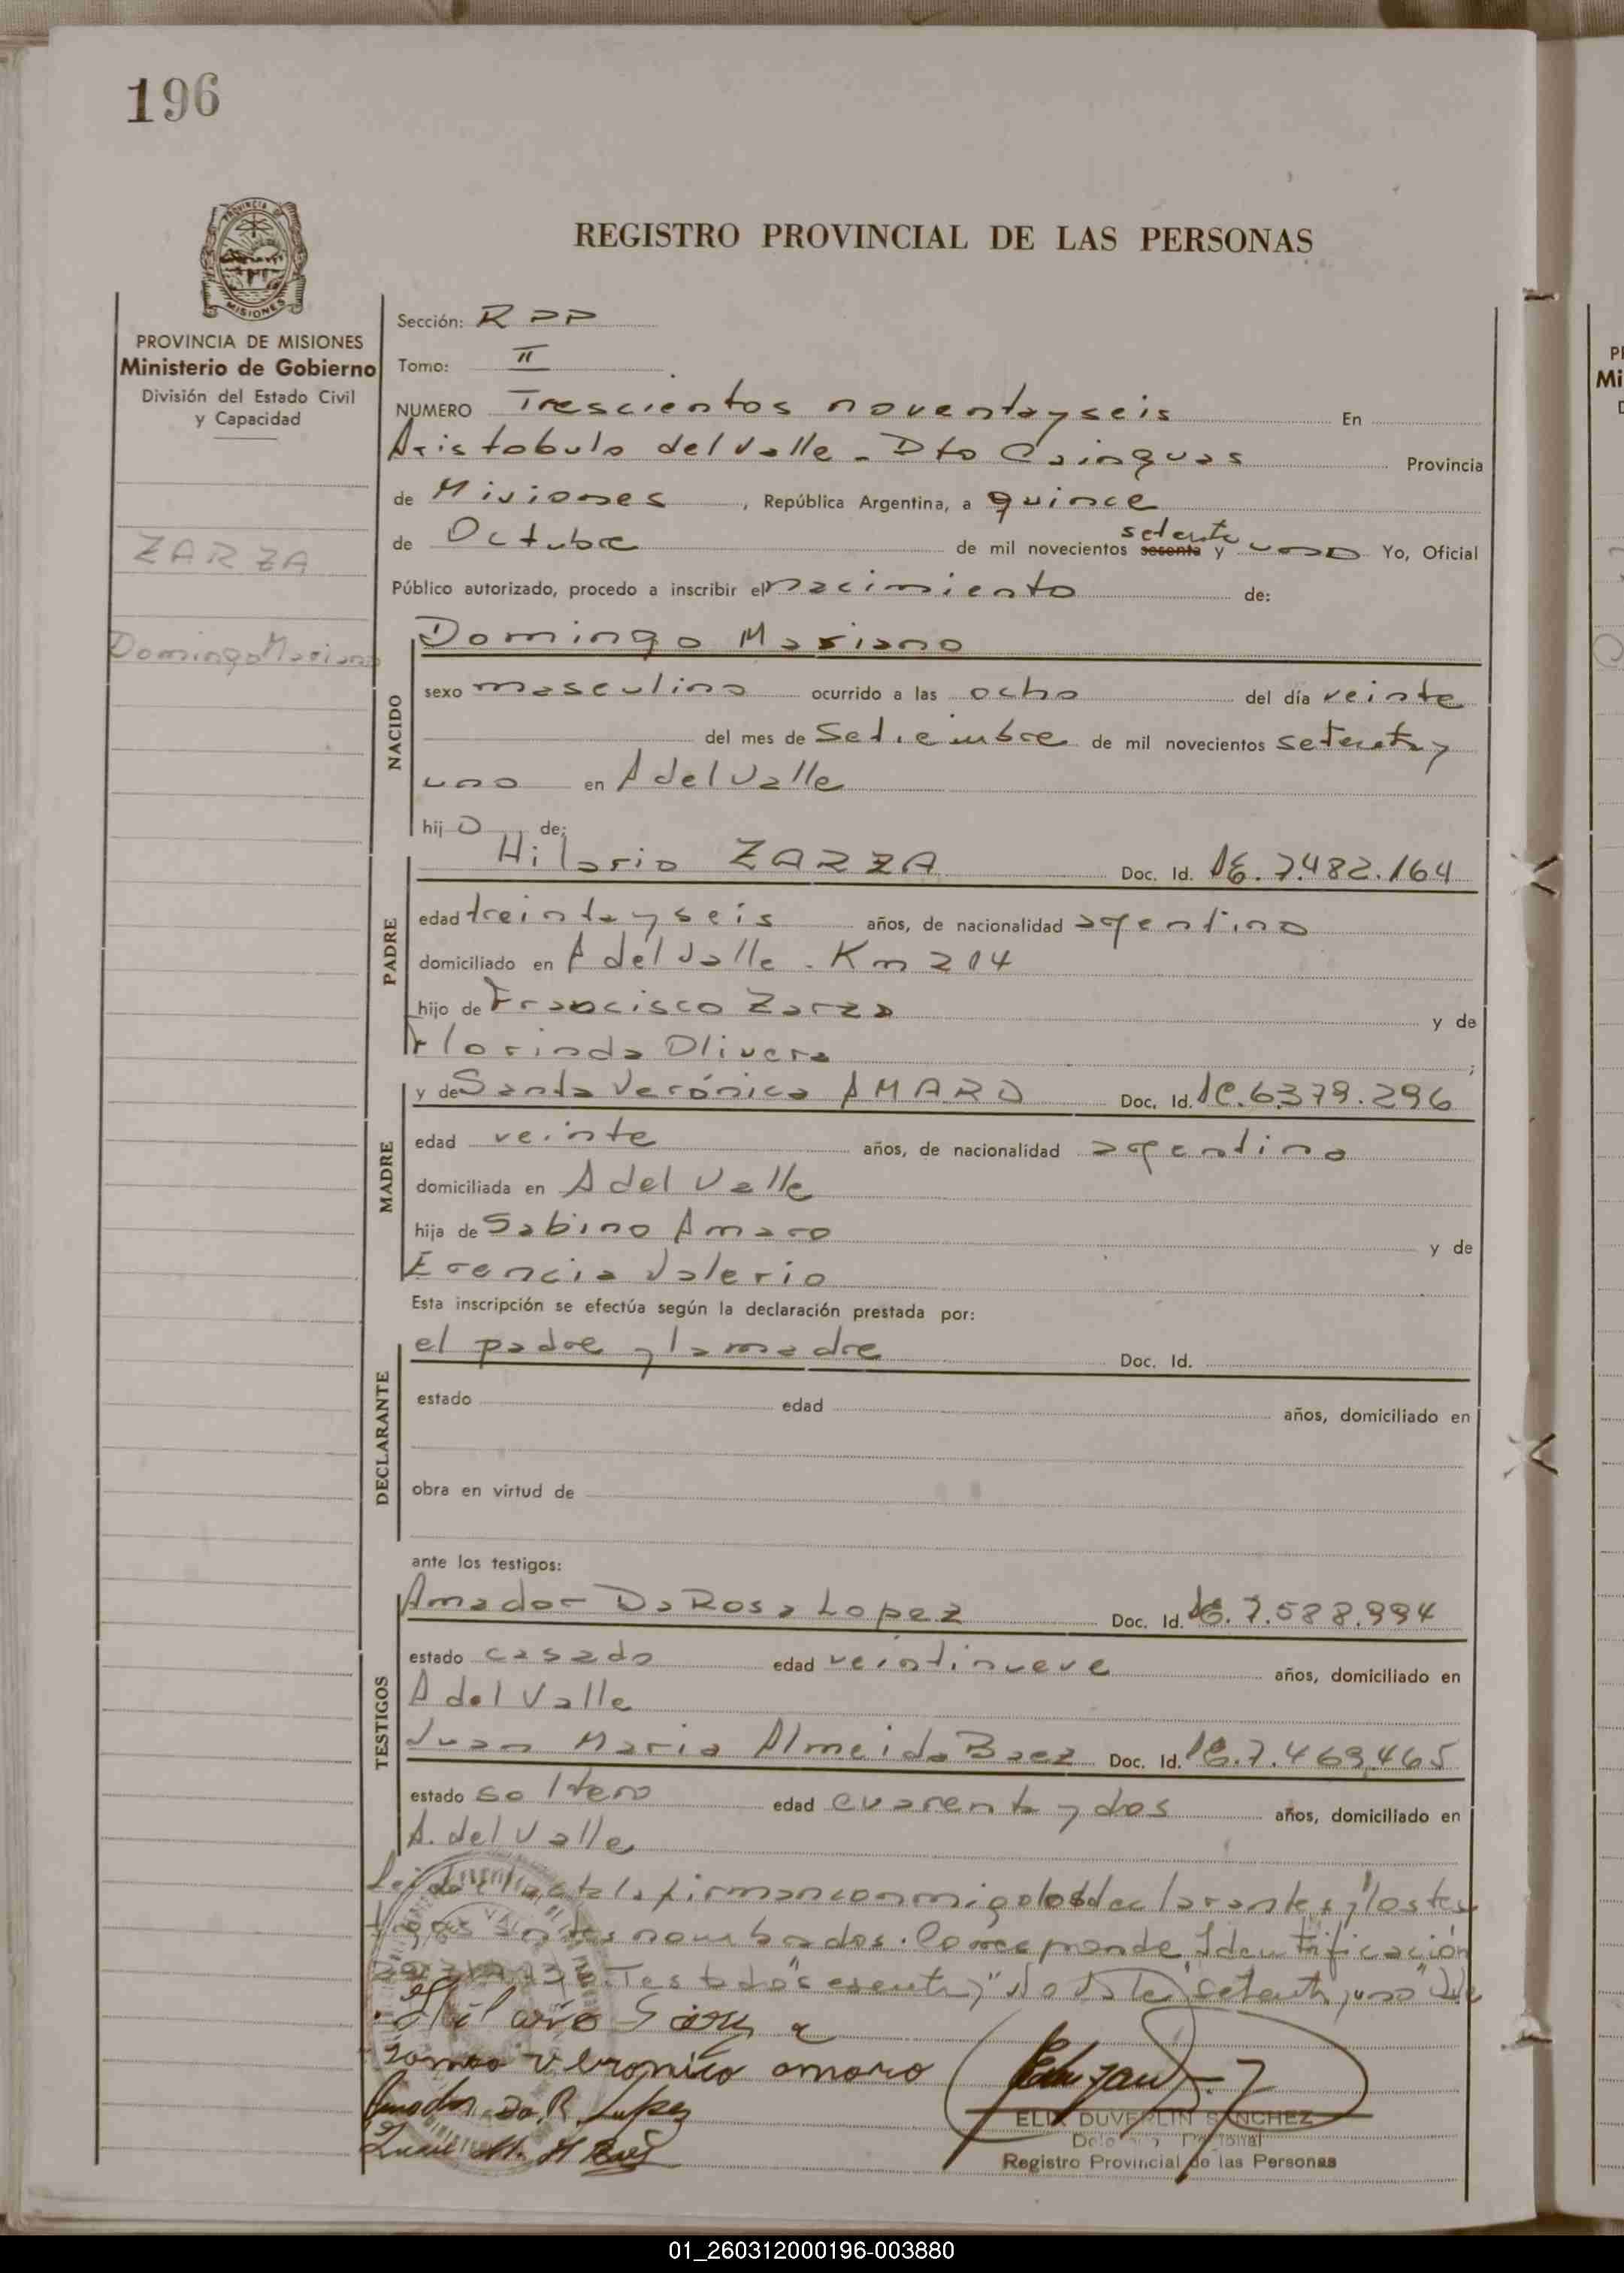 196
PROVINCIA DE MISIONES
Ministerio de Gobierno
División del Estado Civil
y Capacidad
ZARZA
Domingo Mariano
REGISTRO PROVINCIAL DE LAS PERSONAS
Sección: RPP
Tomo: II
NUMERO Trescientos noventa y seis En
Aristobulo del Valle - Dto Cainguas Provincia
de Misiones, República Argentina, a quince
setenta
de Octubre de mil novecientos sesenta y uno Yo, Oficial
Público autorizado, procedo a inscribir el nacimiento de:
NACIDO
Domingo Mariano
sexo masculino ocurrido a las ocho del día veinte
del mes de Setiembre de mil novecientos setenta y
uno en A del Valle
hijo de:
PADRE
Hilario ZARZA Doc. Id. 7.482.164
edad treinta y seis años, de nacionalidad agentino
domiciliado en A del Valle - Km 214
hijo de Francisco Zarza y de
Florinda Olivera ;
MADRE
y de Santa Verónica AMARO Doc. Id. 6.379.296
edad veinte años, de nacionalidad agentina
domiciliada en A del Valle
hija de Sabino Amaro y de
Erencia Valerio
Esta inscripción se efectúa según la declaración prestada por:
DECLARANTE
el padre y la madre Doc. Id.
estado edad años, domiciliado en
obra en virtud de
ante los testigos:
TESTIGOS
Amador Da Rosa Lopez Doc. Id. 7.588.994
estado casado edad veintinueve años, domiciliado en
A del Valle
Juan Maria Almeida Baez Doc. Id. 7.469.465
estado soltero edad cuarenta y dos años, domiciliado en
A. del Valle
Leida el acta la firman conmigo los declarantes y los tes
tigos antes nombrados. Corresponde Identificación
Testado "sesenta y" setenta y uno" Vale
Hilario Sarza
Santa veronica amaro
Amador Da R. Lopez
ELIX DUVERLIN SANCHEZ
Registro Provincial de las Personas
01_260312000196-003880